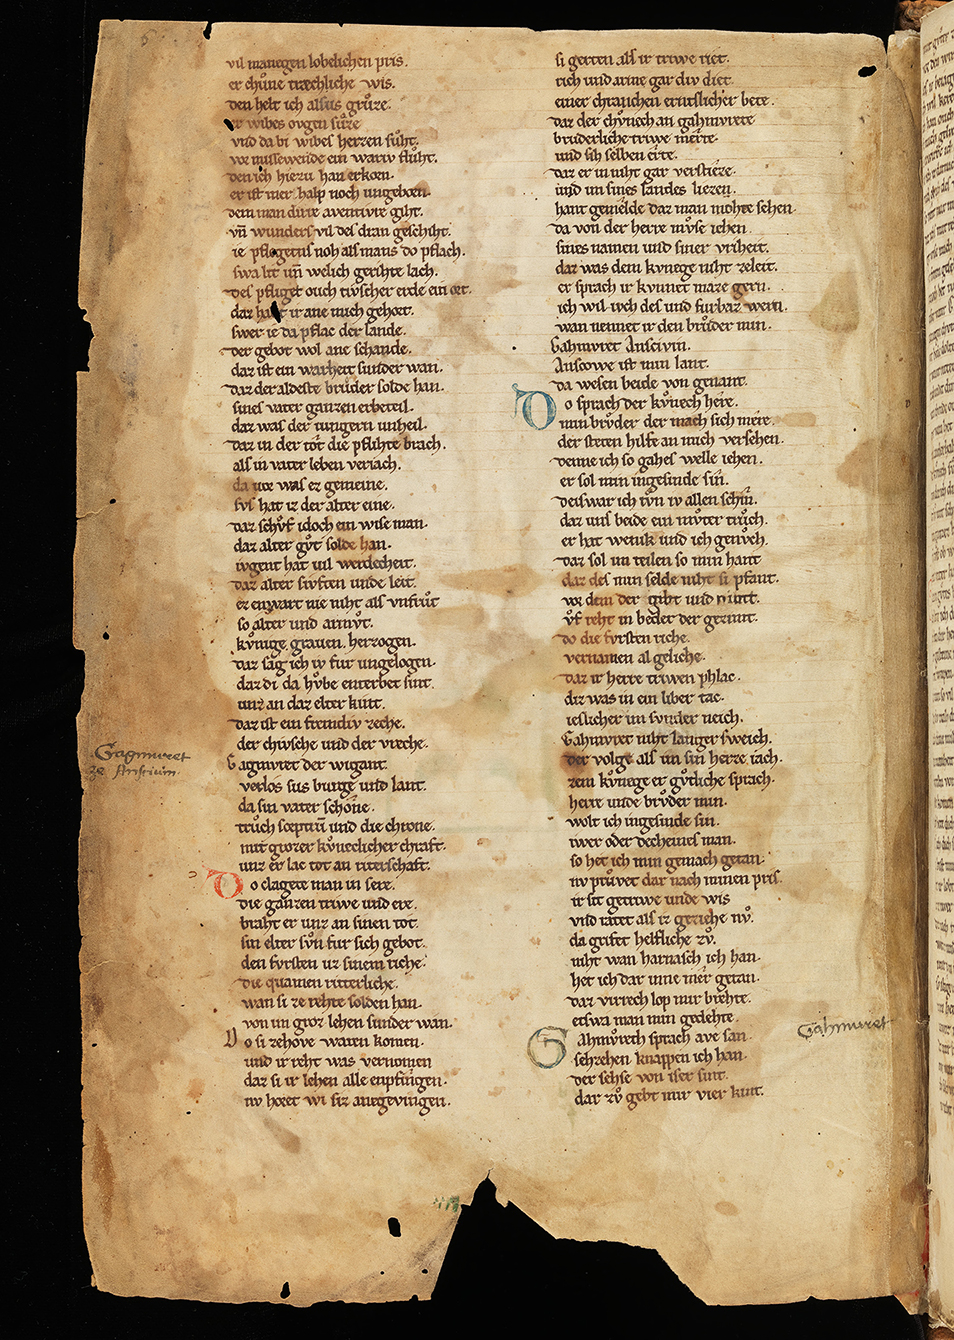 vil manegen lobelichen pris.
er chůne træchliche wis.
den helt ich alsus grůze.
er wibes ovgen sůze
vnd da bi wibes herzen sůht.
vor missewende ein wariv flůht.
den ich hiezu han erkorn.
er ist mer halp noch ungeborn.
dem man dirre aventivre giht.
vñ wunders vil des dran geschiht.
ie pflegents noh als mans do pflach.
swa lit uñ welich gerihte lach.
des pfliget ouch tivscher erde ein ort.
daz habt ir ane mich gehort.
swer ie da pflac der lande.
der gebot wol ane schande.
daz ist ein warheit sunder wan.
daz der aldeste brůder solde han.
sines vater ganzen erbeteil.
daz was der iungern unheil.
daz in der tot die pflihte brach.
als in vater leben veriach.
da vor was ez gemeine.
sus hat iz der alter eine.
daz schůf idoch ein wise man.
daz alter gůt solde han.
ivgent hat vil werdecheit.
daz alter sivften unde leit.
ez enwart nie niht als vnfrůt
so alter und armůt.
kůnige, graven, herzogen.
daz sag ich iv fur ungelogen.
daz di da hůbe enterbet sint.
unz an daz elter kint.
daz ist ein fremdiv zeche.
der chivsche und der vreche.
Gagmuret
ze Anscium.
Gagmuret der wigant.
verlos sus burge und lant.
da sin vater schone.
trůch sceptrũ und die chrone.
mit grozer kůneclicher chraft.
unz er lac tot an riterschaft.
Do clagete man in sere.
die ganzen triwe und ere.
braht er unz an sinen tot.
sin elter sůn fur sich gebot.
den fvrsten uz sinem riche.
die quamen ritterliche.
wan si ze rehte solden han.
von im groz lehen sunder wan.
Do si zehove waren komen.
und ir reht was vernomen
daz si ir lehen alle enpfingen.
nv horet wi siz anegevingen.
si gerten als ir triwe riet.
rich und arme gar div diet.
einer chranchen ernstlicher bete.
daz der chůnech an gahmvrete
bruderliche triwe merte.
und sih selben erte.
daz er in niht gar verstieze.
und im sines landes liezen.
hant gemelde daz man mohte sehen.
da von der herre mvse iehen.
sines namen und siner vriheit.
daz was dem kvnege niht zeleit.
er sprach ir kvnnet maze gern.
ich wil ivch des und furbaz wern.
wan nennet ir den brůder min.
Gahmvret Anscivin.
Anscowe ist min lant.
da wesen beide von genant.
Do sprach der kůnech here.
min brůder der mach sich mere.
der steten hilfe an mich versehen.
denne ich so gahes welle iehen.
er sol min ingesinde sin.
deiswar ich tůn iv allen schin.
daz uns beide ein mvter trůch.
er hat wenik und ich genůch.
daz sol im teilen so min hant
daz des min selde niht si pfant.
vor dem der gibt und nimt.
ůf reht in beder der gezimt.
do die fvrsten riche.
vernamen al geliche.
daz ir herre triwen phlac.
diz was in ein liber tac.
ieslicher im svnder neich.
Gahmvret niht langer sweich.
der volge als im sin herze iach.
zem kvnege er gůtliche sprach.
herre unde brůder min.
wolt ich ingesinde sin.
iwer oder decheines man.
so het ich min gemach getan.
nv průvet dar nach minen pris.
ir sit getriwe unde wis
vnd ratet als iz geziehe nů.
da grifet helfliche zů.
niht wan harnasch ich han.
het ich dar inne mer getan.
daz virrech lop mir brehte.
etswa man min gedehte.
Gahmuret
Gahmůrech sprach ave san.
sehzehen knappen ich han.
der sehse von iser sint.
dar zů gebt mir vier kint.